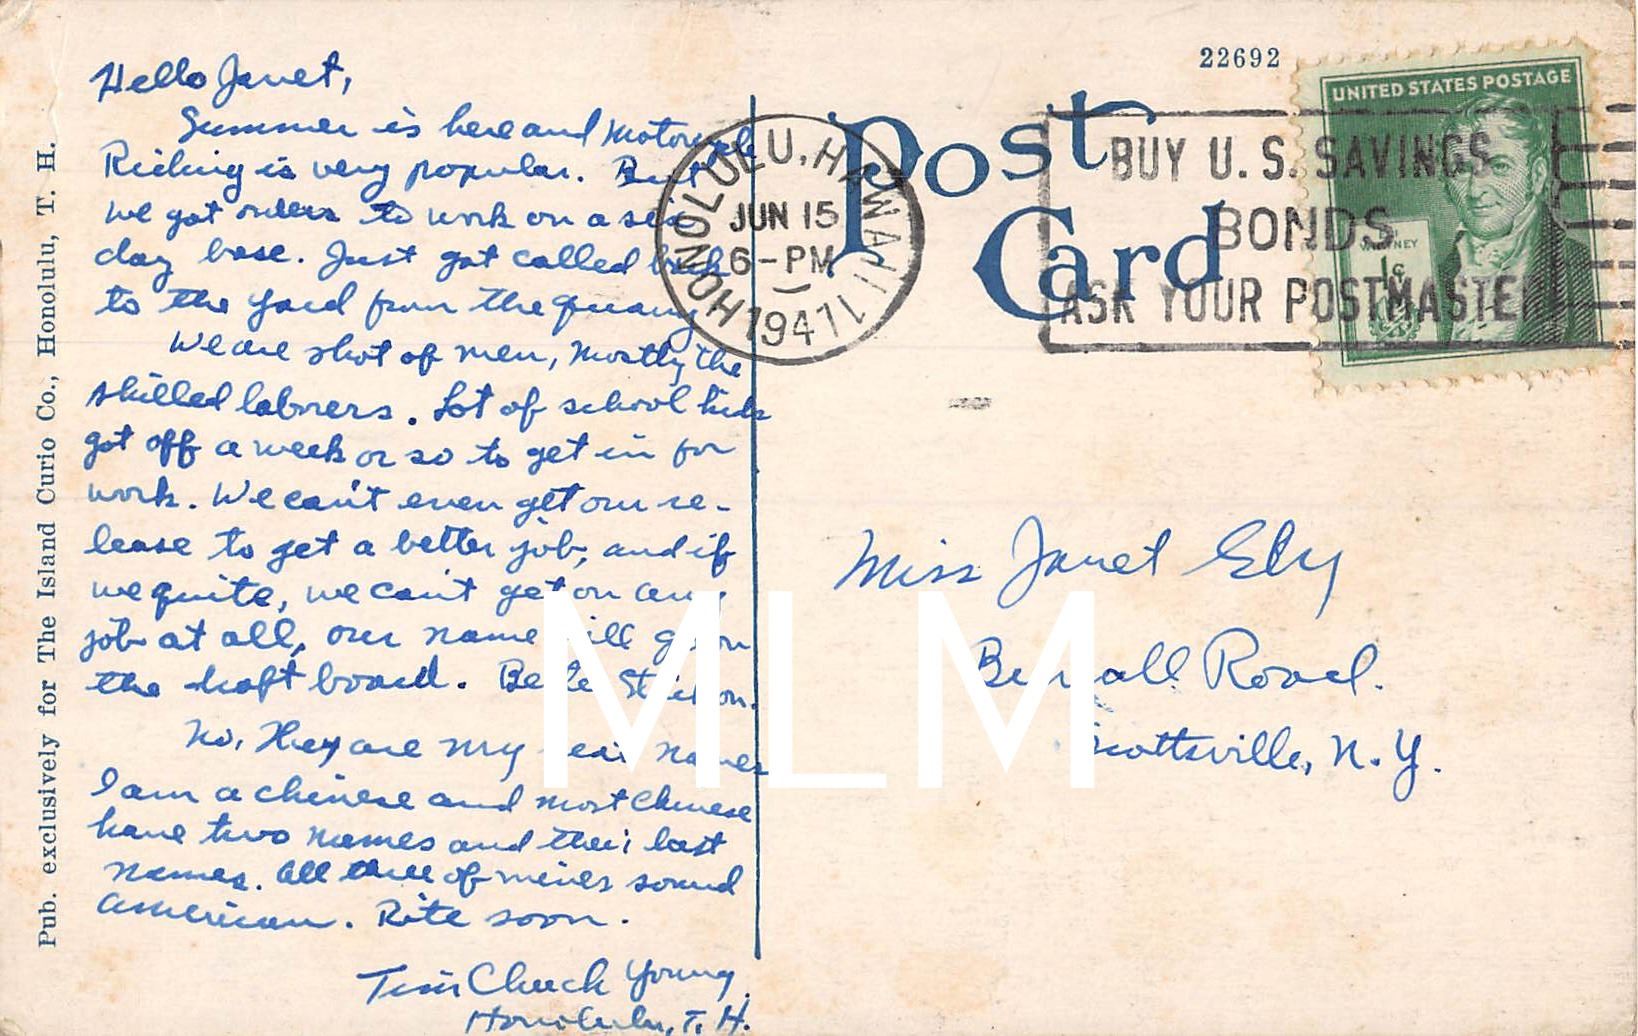 Hello Janet,
Summer is here and Motorcycle
Riding is very popular. But
we got orders to work on a six
day base. Just got called back
to the yard from the quarry
We are short of men, mostly the
skilled laborers. Lot of school kids
got off a week or so to get in for
work. We can't even get our re-
lease to get a better job, and if
we quite, we can't get on any
job at all, our name will go on
the draft board.
No, They are my real names
I am a chinese and most Chinese
have two names and their last
names. All three of mines sound
American. Rite soon.
Tim Chuck Young
Honolulu, T. H.
Pub. exclusively for The Island Curio Co., Honolulu, T. H.
22692
Post
Card
HONOLULU, HAWAII
JUN 15
6-PM
1941
BUY U. S. SAVINGS
BONDS
ASK YOUR POSTMASTER
UNITED STATES POSTAGE
1¢
Miss Janet Eby
Road.
Scottsville, N. Y.
MLM